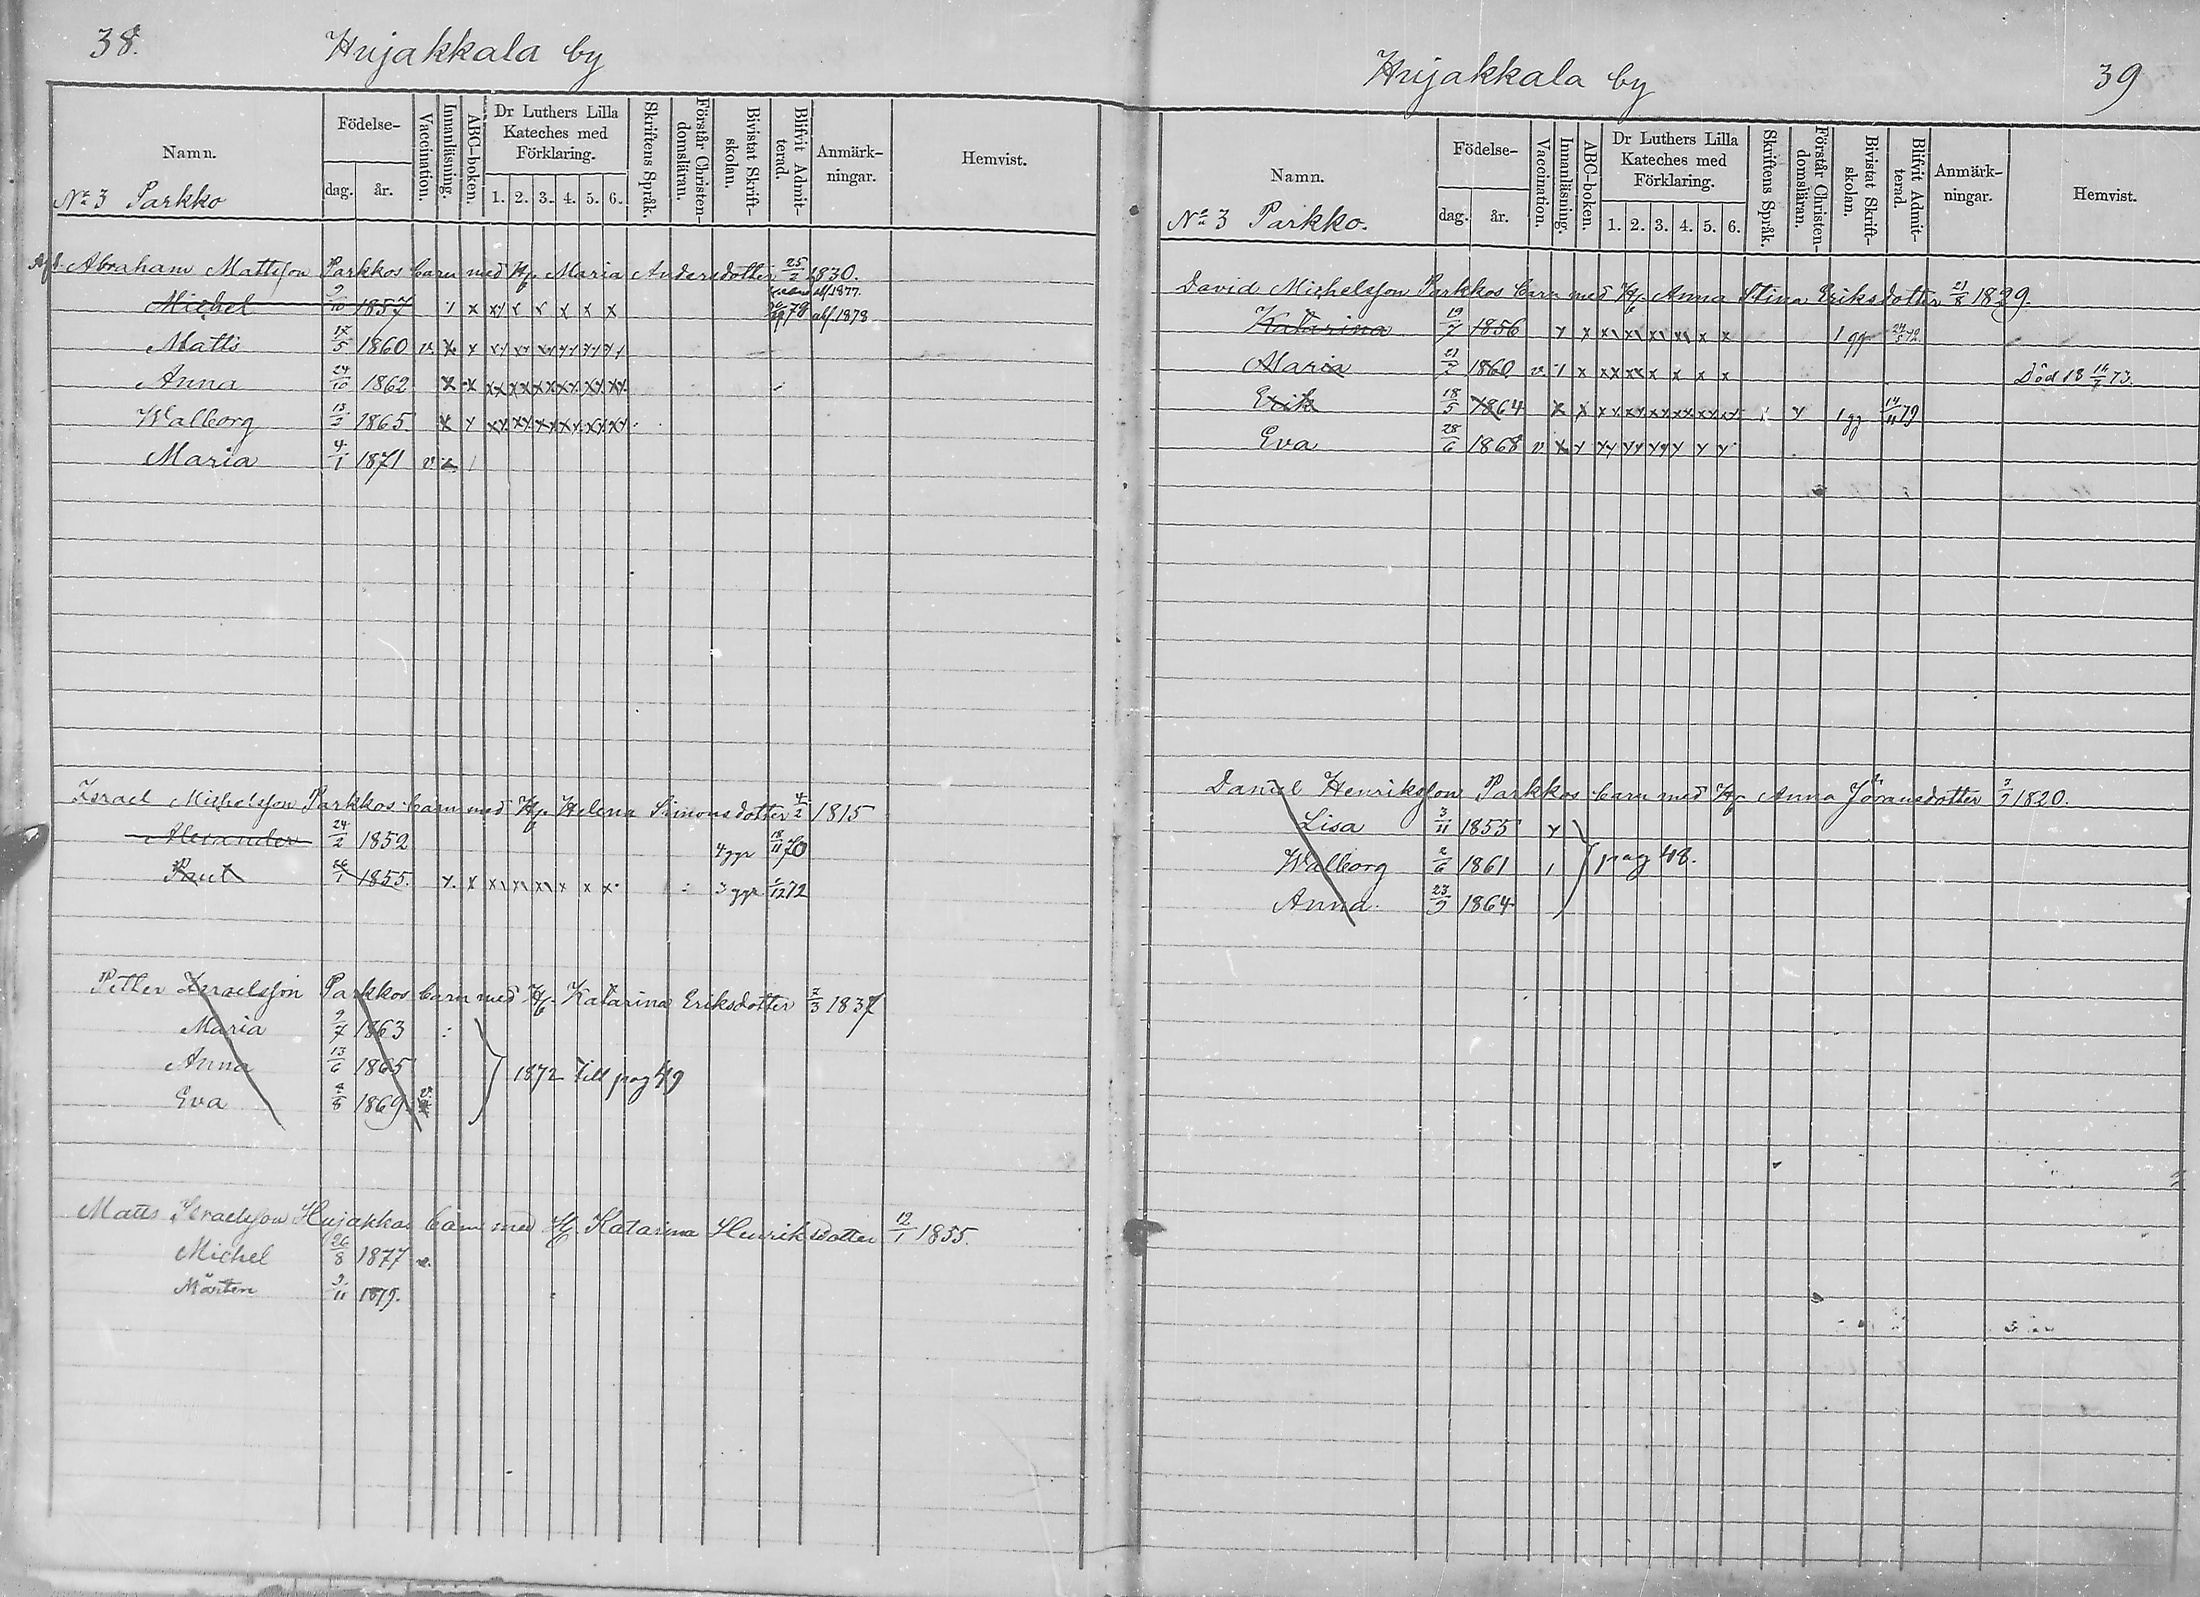 38.
Hujakkala by
Namn.
Födelse-
dag.
år.
Vaccination.
Innanläsning.
ABC-boken.
Dr Luthers Lilla Kateches med Förklaring.
1. 2. 3. 4. 5. 6.
Skriftens Språk.
Förstår Christendomsläran.
Bivistat Skriftskolan.
Blifvit Admitterad.
Anmärkningar.
Hemvist.
No 3 Parkko
Abraham Mattsson Parkkos barn med H. Maria Andersdotter 25/2 1830.
abs 1877.
Michel 9/10 1857 78 abs 1878
Matts 1860 v.
Anna 24/10 1862
Walborg 1865
Maria 4/1 1871 v
Israel Michelsson Parkkos barn med H. Helena Simonsdotter 4/2 1815
Alexander 24/2 1852 4 ggr 18/11 70
Paul 1855. 3 ggr 72
Petter Israelsson Parkkos barn med H. Katarina Eriksdotter 1837
Maria 9/7 1863
Anna 13/6 1865 1872 till pag 49
Eva 1869
Matts Israelsson Hujakkas barn med H. Katarina Henriksdotter 12/1 1855.
Michel 26/8 1877 v.
Mårten 9/11 1879.
39
Hujakkala by
Namn.
Födelse-
dag.
år.
Vaccination.
Innanläsning.
ABC-boken.
Dr Luthers Lilla Kateches med Förklaring.
1. 2. 3. 4. 5. 6.
Skriftens Språk.
Förstår Christendomsläran.
Bivistat Skriftskolan.
Blifvit Admitterad.
Anmärkningar.
Hemvist.
No 3 Parkko.
David Michelsson Parkkos barn med H. Anna Stina Eriksdotter 21/8 1829.
Katarina 19/7 1856 1 gg
Maria 1860 v. Död 18 73.
Erik 18/5 1864 1 gg 14/11 79
Eva 28/6 1868 v
Daniel Henriksson Parkkos barn med H. Anna Jöransdotter 1820.
Lisa 3/11 1855
Walborg 2/6 1861 pag 48.
Anna. 23/9 1864